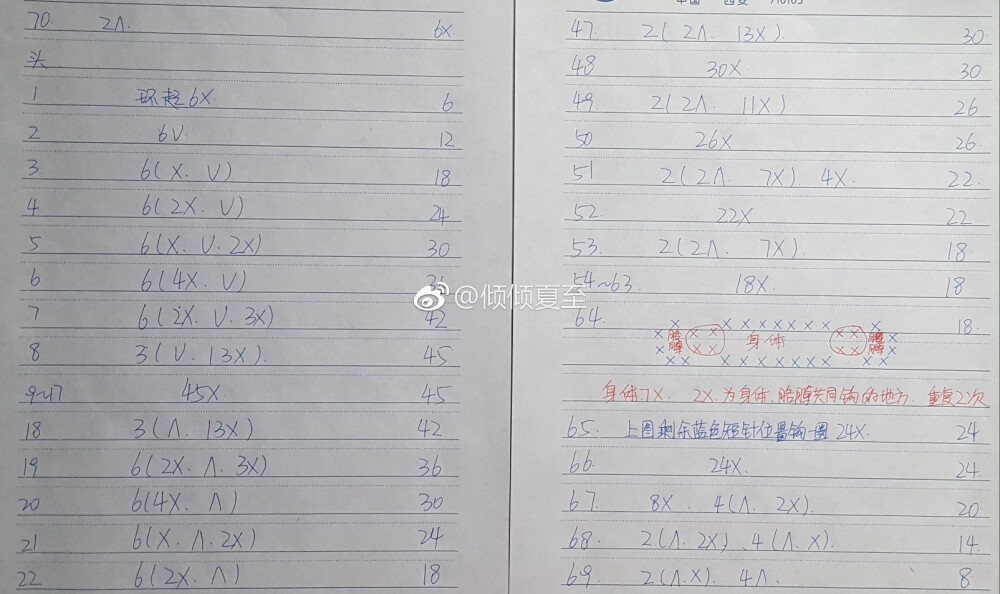 70. 2Λ. 6X.
头
1 环起6X. 6
2 6V 12
3. 6(X. V) 18
4 6(2X. V) 24
5 6(X. V. 2X) 30
6 6(4X. V)
7 6(2X. V. 3X) 42
8 3(V. 13X). 45
9~17 45X. 45
18 3(Λ. 13X) 42
19 6(2X. Λ. 3X) 36
20 6(4X. Λ) 30
21 6(X. Λ. 2X) 24
22 6(2X. Λ) 18
中国 西安 710105
47. 2(2Λ. 13X). 30
48 30X 30
49 2(2Λ. 11X). 26
50 26X 26.
51 2(2Λ. 7X). 4X. 22.
52. 22X 22
53. 2(2Λ. 7X). 18.
54~63. 18X. 18
64. 18.
X X X X X X X X X
X 胳膊 X X 身体 X X 胳膊 X
X X X X X X
X X X X X X X X X X X
身体7X. 2X为身体、胳膊共同钩的地方. 重复2次
65. 上圈剩余蓝色短针位置钩一圈24X. 24
66. 24X. 24.
67. 8X. 4(Λ. 2X). 20
68. 2(Λ. 2X). 4(Λ. X). 14.
69. 2(Λ.X). 4Λ. 8
@倾倾夏至